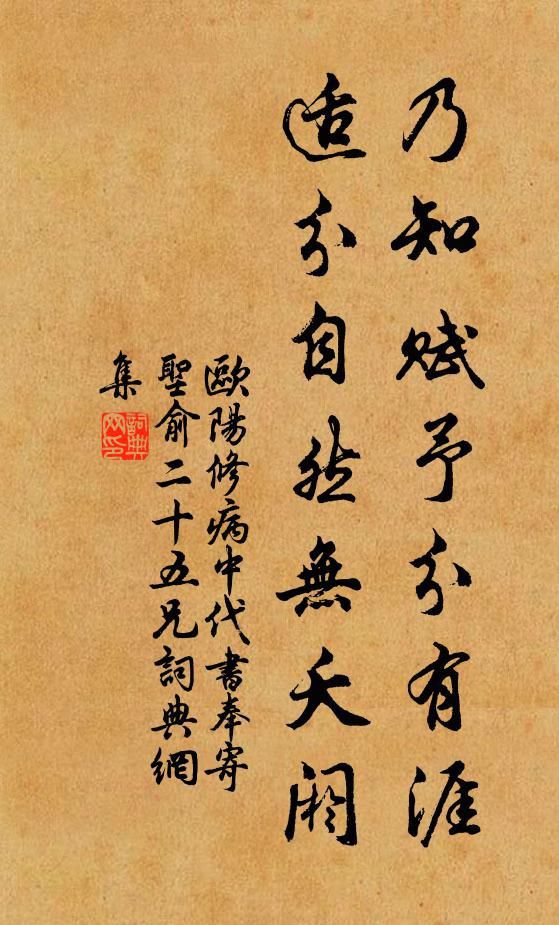 乃知赋予分有涯
适分自然無夭阏
歐陽修病中代書奉寄
聖俞二十五兄詞典網
集
詞典
网印